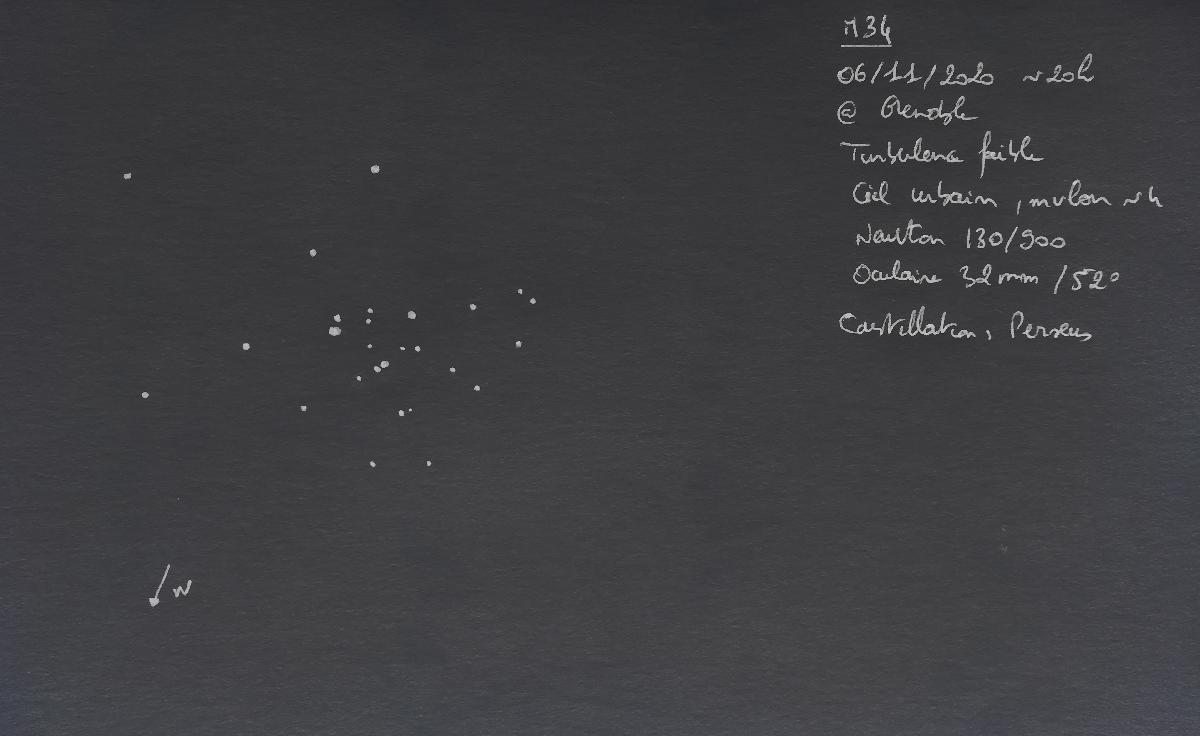 M34
06/11/2020 ~20h
@ Grenoble
Turbulence faible
Ciel urbain, mvlon ~4
Newton 130/900
Oculaire 32mm /52°
Constellation, Perseus
N